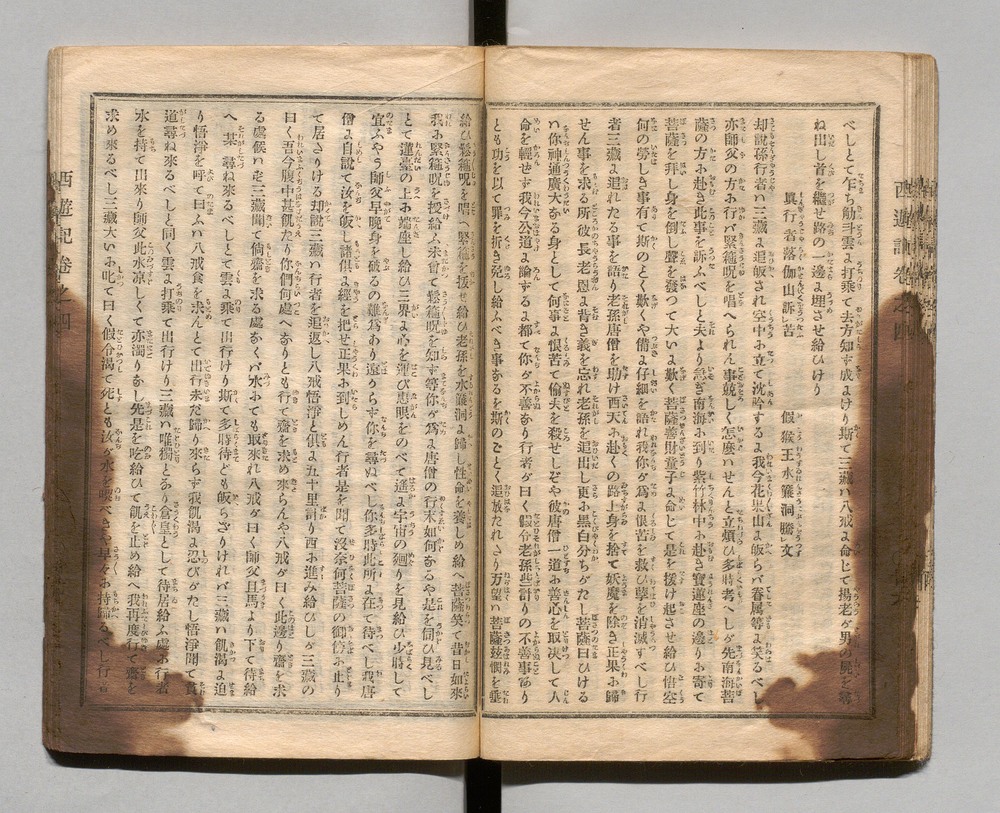 べしとて乍ち觔斗雲に打乗て去方知ず成にけり斯て三藏ハ八戒に命じて揚老が男の屍を尋
ね出し首を繼せ路の一邊に埋させ給ひけり
眞行者落伽山訴苦　假猴王水簾洞謄文
却説孫行者ハ三藏に追皈され空中に立て沈吟するに我今花果山に皈らバ眷属等に笑るべし
亦師父の方に行バ緊箍呪を唱へられん事競しく怎麼ハせんと立煩ひ多時考へしが先南海菩
薩の方に赴き此事を訴ふべしと夫より急ぎ南海に到り紫竹林中に赴き寶蓮座の邊りに寄て
菩薩を拝し身を倒し聲を發つて大いに歎げバ菩薩善財童子に命じて是を援け起させ給ひ悟空
何の勞しき事有て斯のごとく歎くや備に仔細を語れ我你が爲に恨苦を救ひ孽を消滅すべし行
者三藏に追れたる事を語り老孫唐僧を助け西天に赴くの路上身を捨て妖魔を除き正果に歸
せん事を求る所彼長老恩に背き義を忘れ老孫を追出し更に黒白分ちがたし菩薩曰ひける
ハ你神通廣大なる身として何事に恨苦て偸夫を殺せしぞや彼唐僧一道に善心を取决して人
命を輕せず我今公道に論するに都て你が不善なり行者が曰く假令老孫些計りの不善事あり
とも功を以て罪を折き免し給ふべき事なるを斯のごとく追放たれさり万望ハ菩薩玆憫を垂
給ひ鬆箍呪を唱へ緊箍を抜せ給ひ老孫を水簾洞に歸し性命を養しめ給へ菩薩笑て昔日如来
我に緊箍呪を授給ふ未曾て鬆箍呪を知ず等你が爲に唐僧の行末如何なるや是を伺ひ見べし
とて蓮臺の上に端座し給ひ三界に心を運び恵眼をのべて遙に宇宙の廻りを見給ひ少時して
宣ふやう師父早晩身を破るの難爲あり遠からず你を尋ぬべし你多時此所に在て待べし我唐
僧に自説て汝を皈し諸俱に經を把せ正果に到しめん行者是を聞て没奈何菩薩の御傍に止り
て居さりける却説三藏ハ行者を追返し八戒悟淨と俱に五十里計り西に進み給ひしが三藏の
曰く吾今腹中甚飢たり你們何處へなりとも行て齋を求め来らんや八戒が曰く此邊り齋を求
る處候ハず三藏聞て倘齋を求る處なくバ水にても取來れ八戒が曰く師父且馬より下て待給
へ某尋ね來るべしとて雲に乗て出行けり斯て多時待ども皈らざりけれバ三藏ハ飢渇に迫
り悟淨を呼て曰ふハ八戒食を求んとて出行未だ歸り來らず我飢渇に忍びがたし悟淨聞て食
道尋ね來るべしと同く雲に打乗て出行けり三藏ハ唯獨とあり倉皇として待居給ふ處に行者
水を持て出來り師父此水凉しくて亦濁りなし先是を吃給ひて飢を止め給へ我再度行て齋を
求め來るべし三藏大いに叱て曰く假令渇て死とも汝が水を喫べきや早を持歸るべし行者
西遊記卷之四
西遊記卷之四